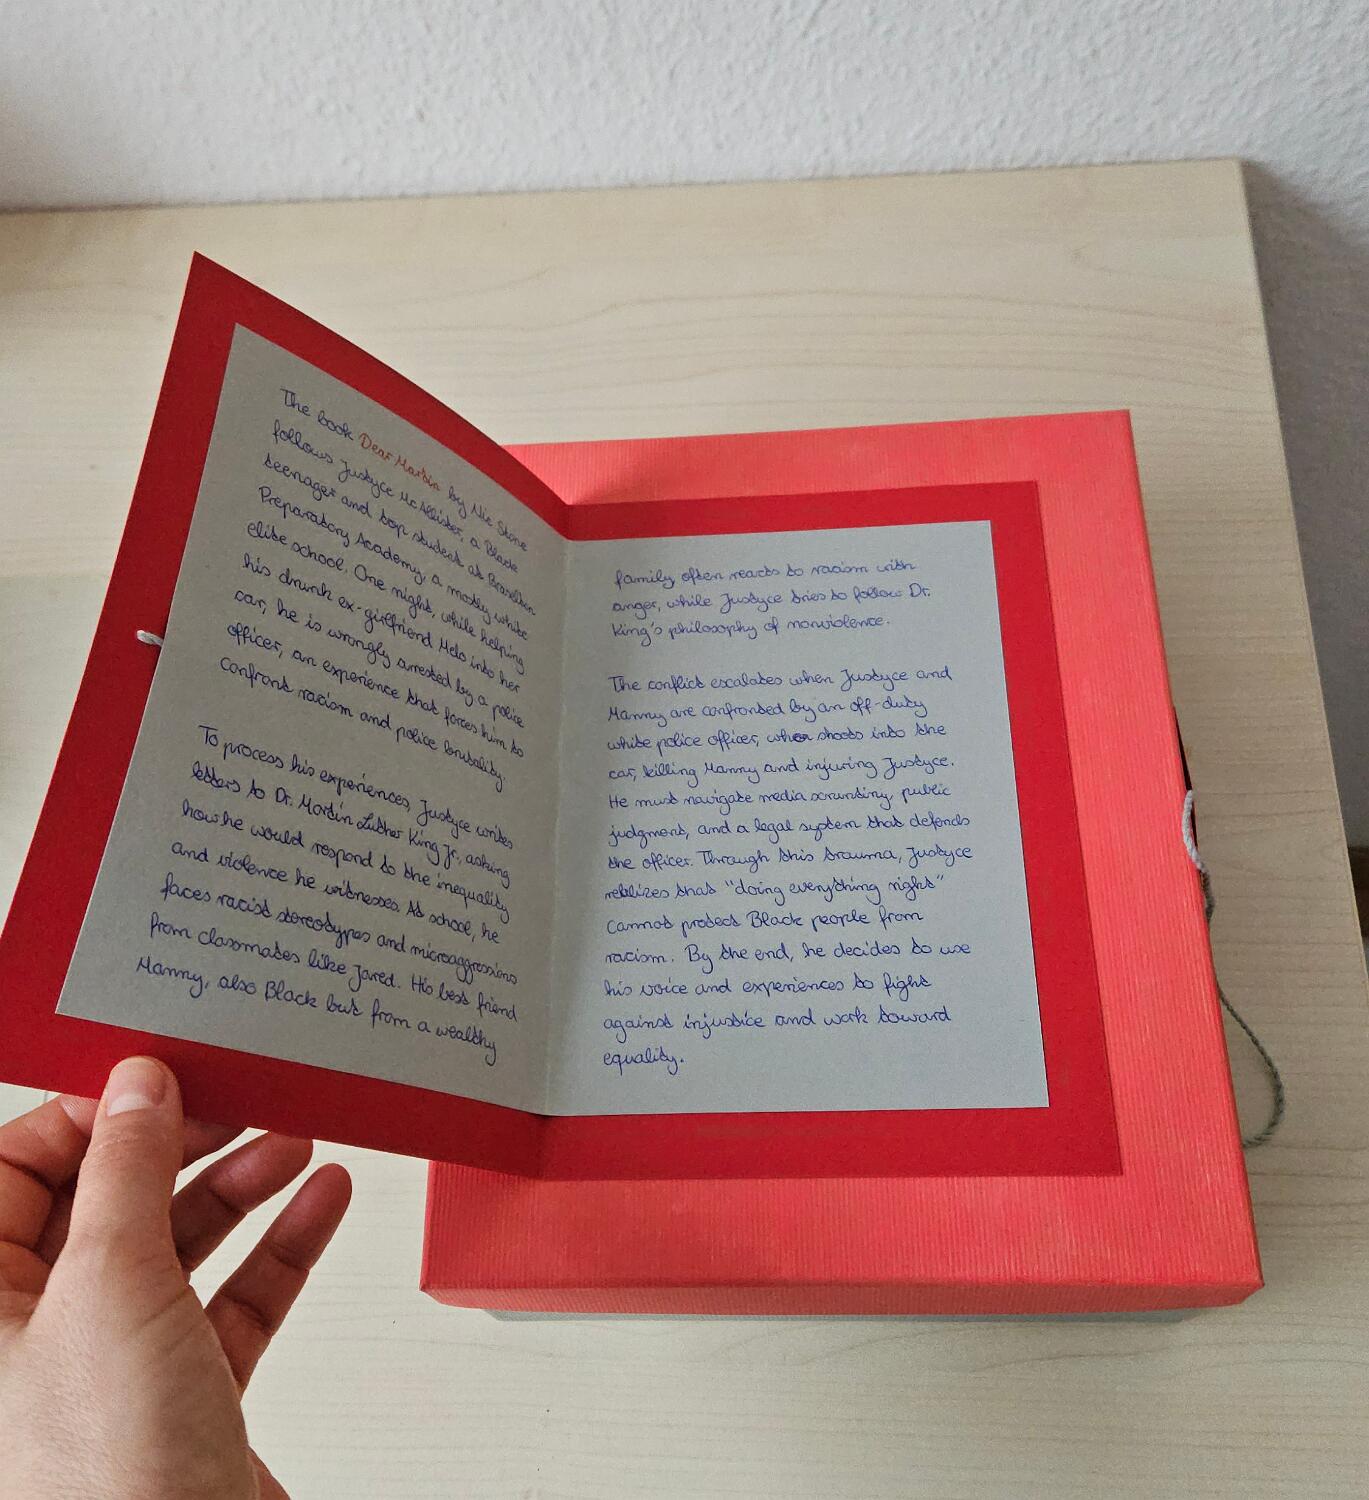 The book Dear Martin by Nic Stone
follows Justyce McAllister, a Black
teenager and top student at Braselton
Preparatory Academy, a mostly white
elite school. One night, while helping
his drunk ex-girlfriend Melo into her
car, he is wrongly arrested by a police
officer, an experience that forces him to
confront racism and police brutality.
To process his experiences, Justyce writes
letters to Dr. Martin Luther King Jr., asking
how he would respond to the inequality
and violence he witnesses. At school, he
faces racist stereotypes and microaggressions
from classmates like Jared. His best friend
Manny, also Black but from a wealthy
family often reacts to racism with
anger, while Justyce tries to follow Dr.
King's philosophy of nonviolence.
The conflict escalates when Justyce and
Manny are confronted by an off-duty
white police officer, when shoots into the
car, killing Manny and injuring Justyce.
He must navigate media scrunting, public
judgment, and a legal system that defends
the officer. Through this trauma, Justyce
realizes that "doing everything right"
cannot protect Black people from
racism. By the end, he decides to use
his voice and experiences to fight
against injustice and work toward
equality.